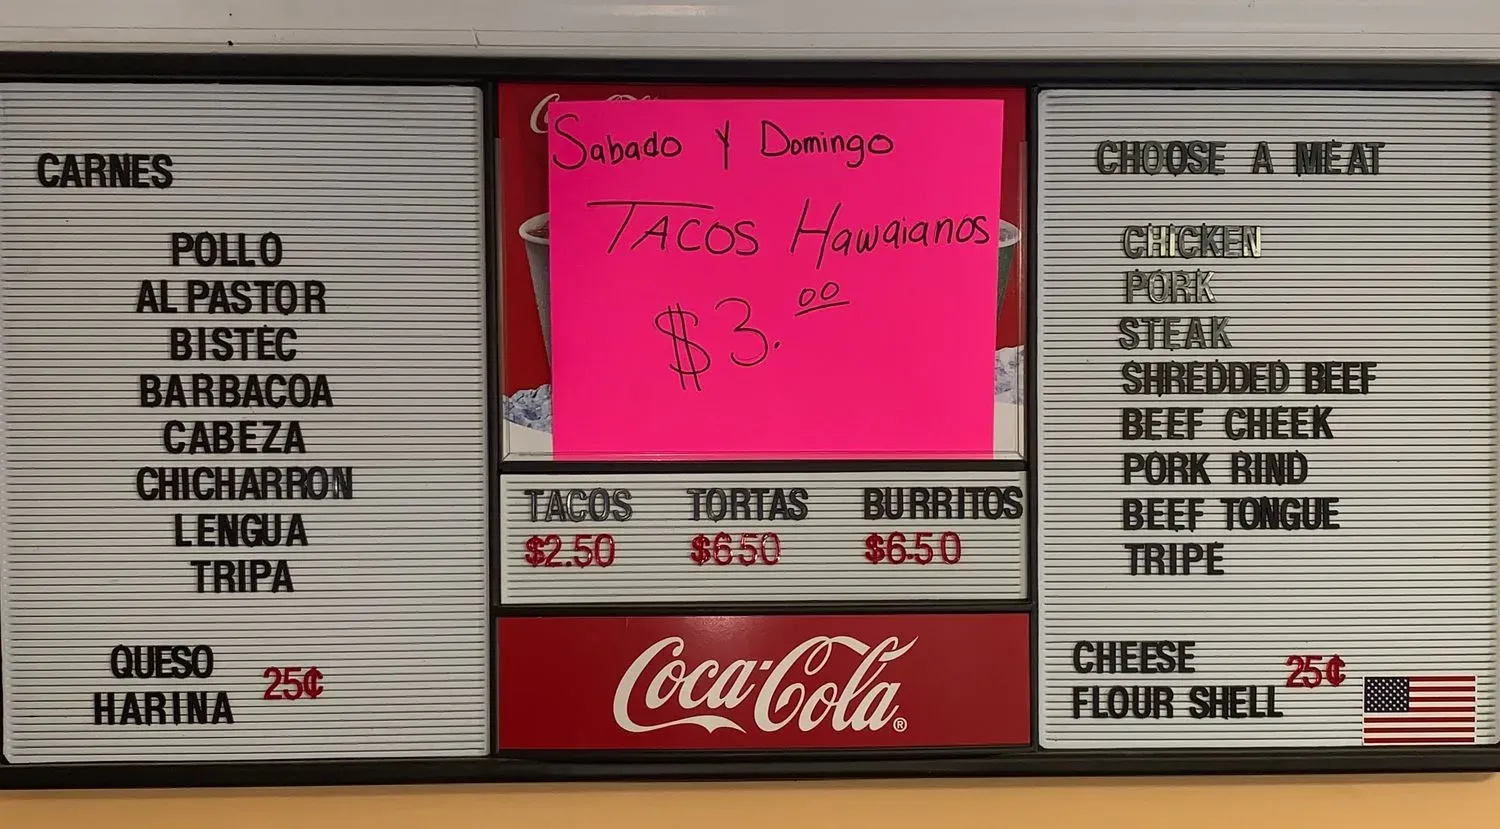 CARNES
POLLO
AL PASTOR
BISTEC
BARBACOA
CABEZA
CHICHARRON
LENGUA
TRIPA
QUESO
HARINA
25¢
Sabado Y Domingo
TACOS Hawaianos
$3.00
TACOS TORTAS BURRITOS
$2.50 $6.50 $6.50
Coca-Cola®
CHOOSE A MEAT
CHICKEN
PORK
STEAK
SHREDDED BEEF
BEEF CHEEK
PORK RIND
BEEF TONGUE
TRIPE
CHEESE
FLOUR SHELL
25¢